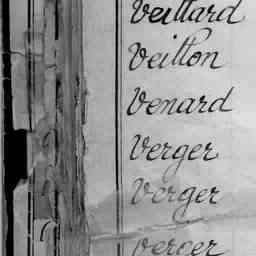 Veillard
Veillon
Venard
Verger
Verger
Verger